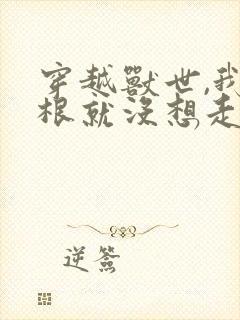 穿越獸世,我
根就沒想走
逆簽